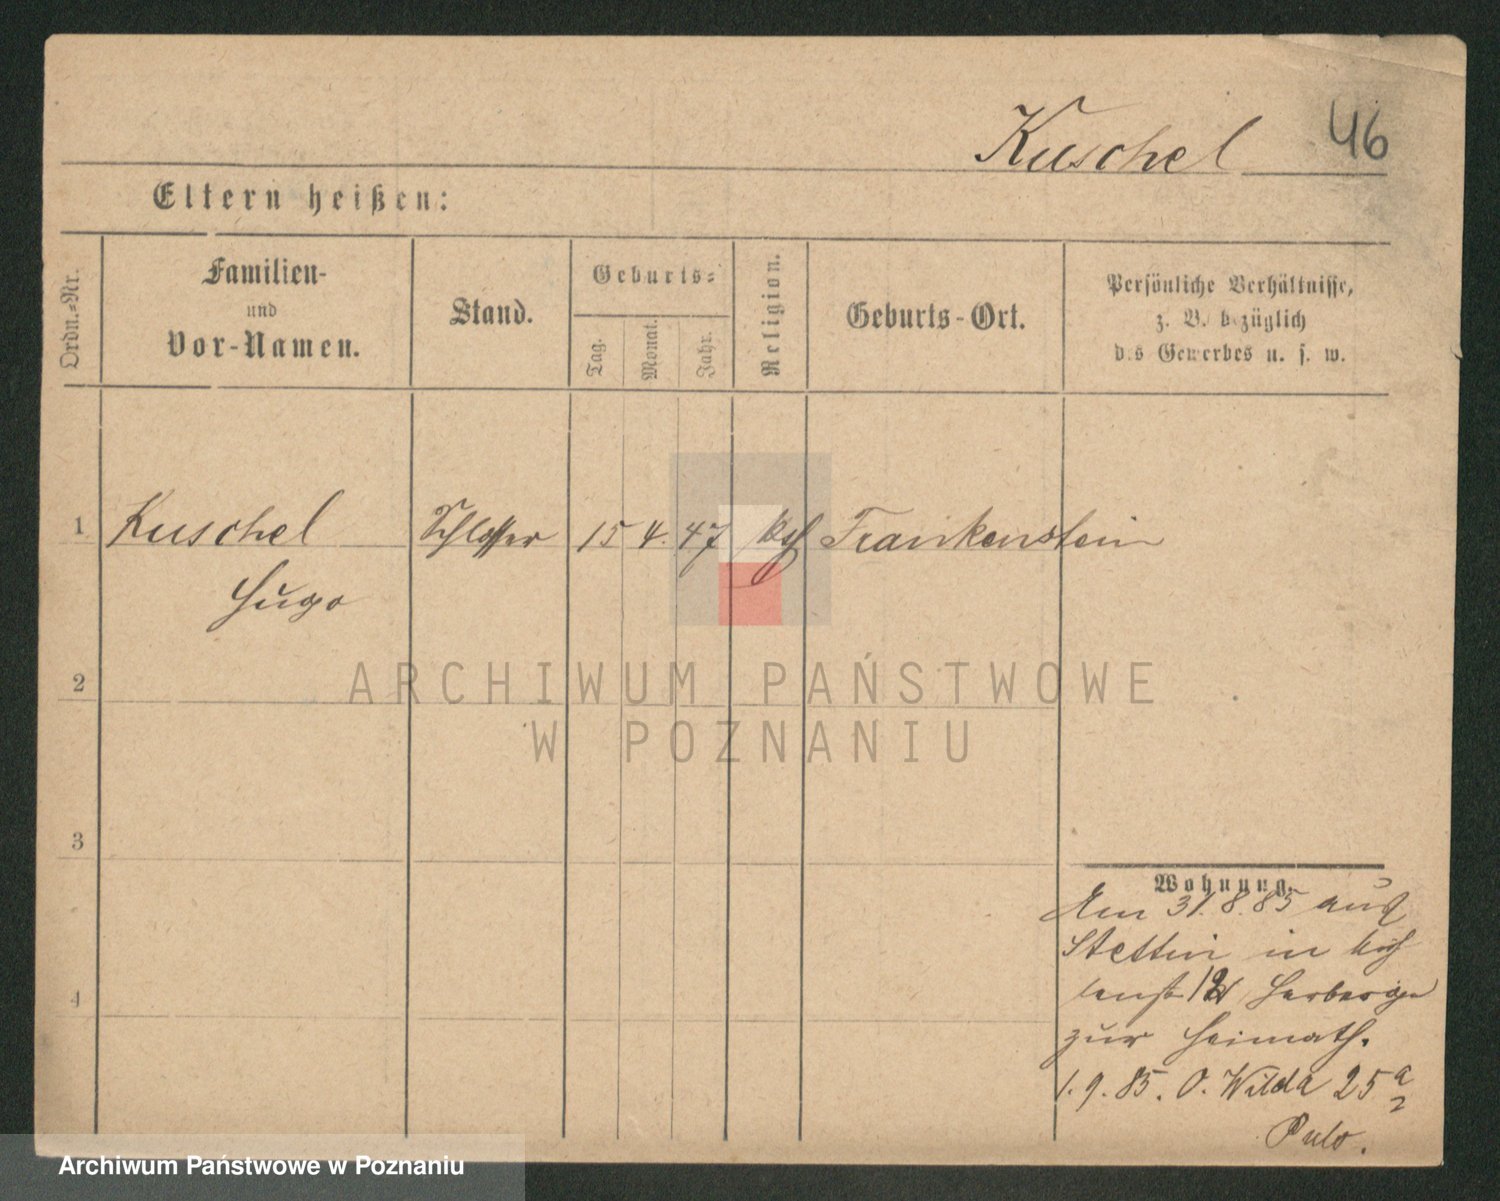 Kuschel 46
Eltern heißen:
Ordn.-Nr.
Familien-
und
Vor-Namen.
Stand.
Geburts-
Tag.
Monat.
Jahr.
Religion.
Geburts-Ort.
Persönliche Verhältnisse,
z. B. bezüglich
des Gewerbes u. s. w.
1 Kuschel Schlosser 15 4. 47 Frankenstein
Hugo
2
ARCHIWUM PAŃSTWOWE
W POZNANIU
3
Wohnung.
Am 31.8.85 aus
Stettin in
Herberge
4
zur Heimath.
1.9.85. O. Wilda 25 a/2
Archiwum Państwowe w Poznaniu